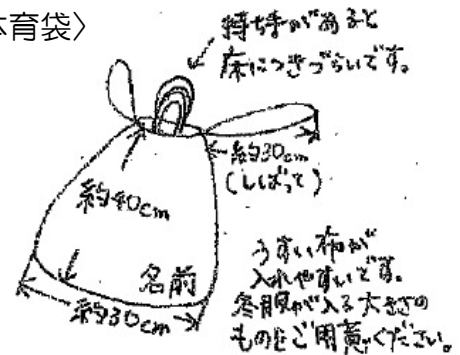 体育袋〉
持ち手があると
床につきづらいです。
約30cm
(しばって)
約40cm
名前
約30cm
うすい布が
入れやすいです。
冬服が入る大きさの
ものをご用意ください。